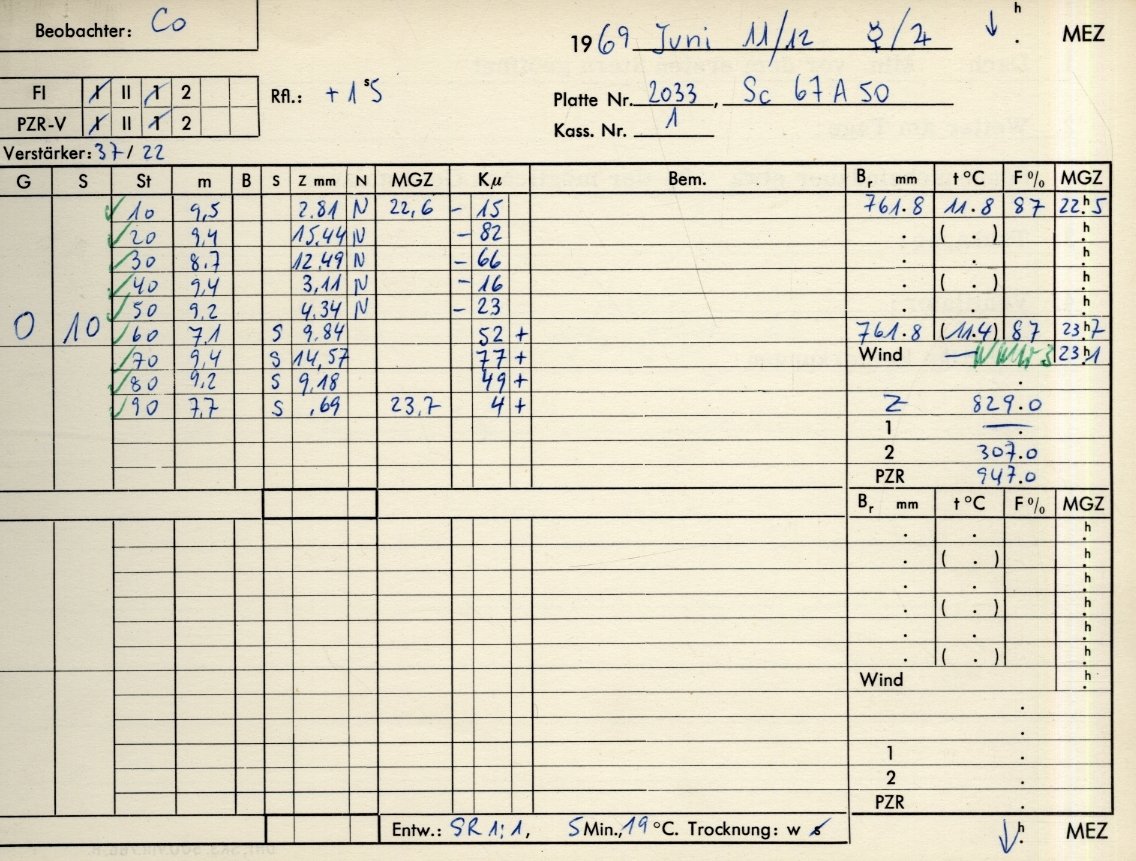 Beobachter: Co
1969 Juni 11/12 ☿/♃ ↓ h . MEZ
FI I II 1 2 Rfl.: + 1ˢ5
PZR-V I II 1 2
Platte Nr. 2033, Sc 67A50
Kass. Nr. 1
Verstärker: 37/22
G S St m B S Z mm N MGZ Kμ Bem. Br mm t °C F % MGZ
10 9,5 2.81 N 22,6 - 15 761.8 11.8 87 22.h5
20 9,4 15,44 N - 82 . ( . ) .h
30 8.7 12,49 N - 66 . . .h
40 9,4 3,11 N - 16 . ( . ) .h
50 9,2 4.34 N - 23 . . .h
0 10 60 7,1 S 9.84 52 + 761.8 (11.4) 87 23.h7
70 9,4 S 14,57 77 + Wind 23.h1
80 9,2 S 9,18 49 + .
90 7,7 S ,69 23,7 4 + Z 829.0
1 .
2 307.0
PZR 947.0
Br mm t °C F % MGZ
. . .h
. ( . ) .h
. . .h
. ( . ) .h
. . .h
. ( . ) .h
Wind .h
.
.
1 .
2 .
PZR .
Entw.: SR 1:1, 5 Min., 19 °C. Trocknung: w s
↓ h . MEZ